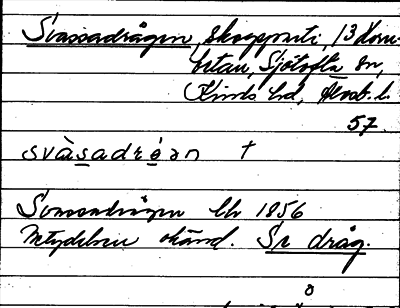 Svassadrågen, skogsparti, 13 Horn-
betan, Sjötofta sn,
Kinds hd, Älvsb. l.
57.
svàsadrǫ́ǝn †
Svassadrågen Lk 1856
Betydelsen okänd. Se dråg.